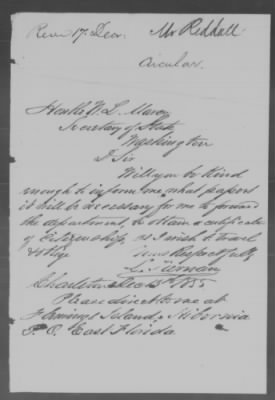 Recd 17 Decr. Mr Reddall
Circular.
Honble W. L. Marcy
Secretary of State
Washington
D Sir
Will you be kind
enough to inform me what papers
it will be necessary for me to forward
the department, to obtain a certificate
of Citizenship, as I wish to travel
yours Respectfully
Charleston Dec 13th 1855
Please direct to me at
Flemings Island, Hibernia
P. O. East Florida